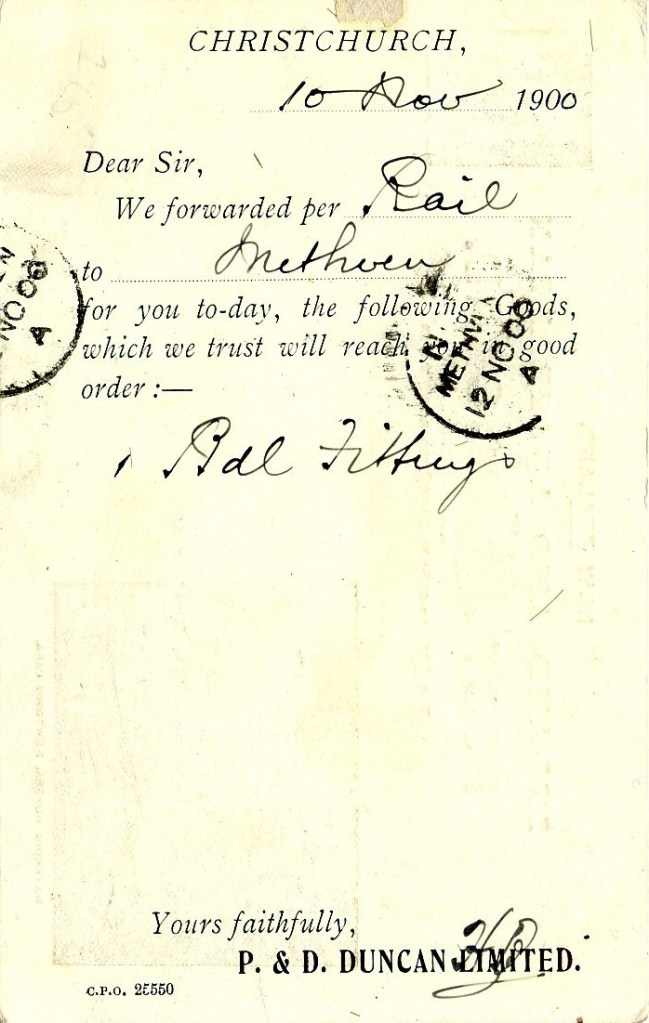 CHRISTCHURCH,
10 Nov 1900
Dear Sir,
We forwarded per Rail
to Methven
for you to-day, the following Goods,
which we trust will reach you in good
order :—
1 Bdl Fittings
EN
NO 00
A
METHV
12 NO 00
A
Yours faithfully,
P. & D. DUNCAN LIMITED.
C.P.O. 25550